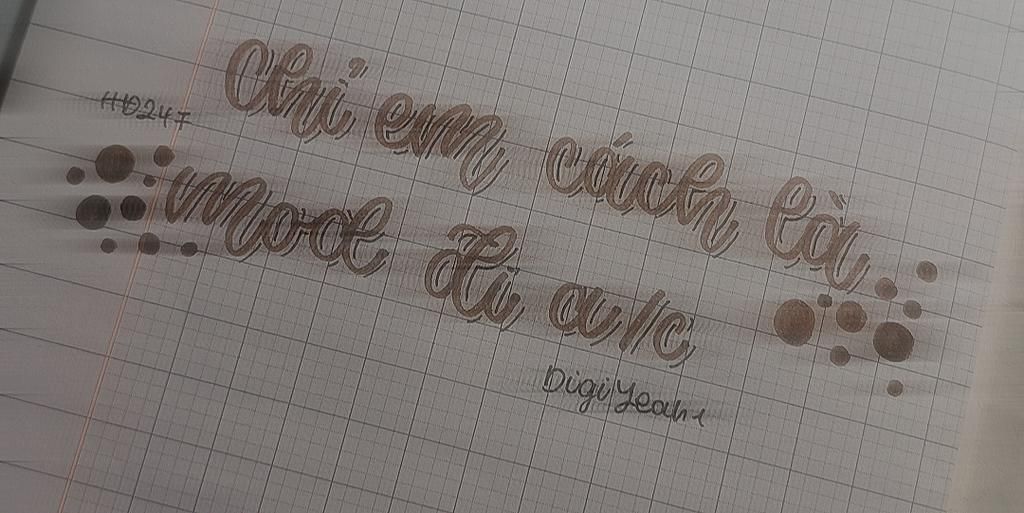 HĐ247
Chỉ em cách là
mod đi a/c
DigiYeah